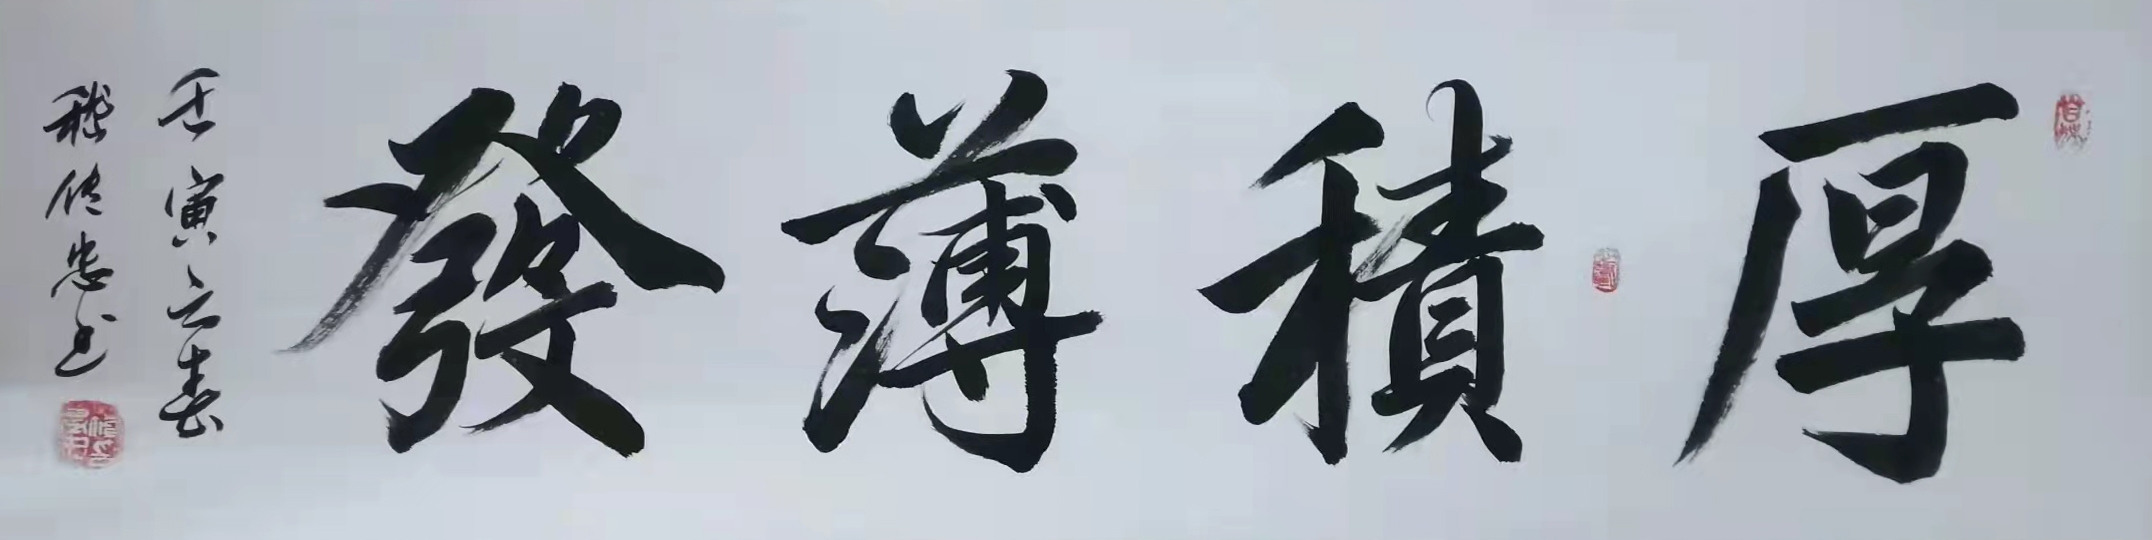 厚積薄發
壬寅之春
嵇传忠书